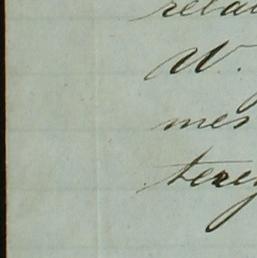 relat
W.
mes
terey